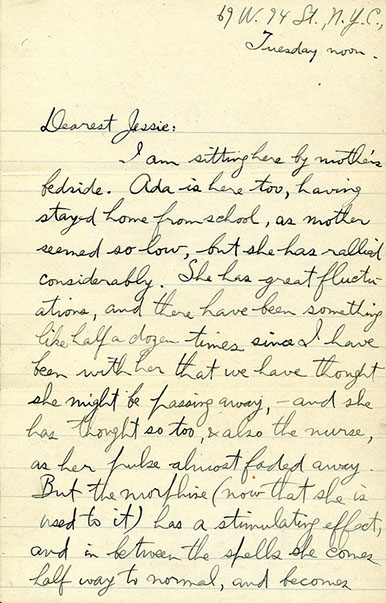 69 W. 94 St., N.Y.C.,
Tuesday noon.
Dearest Jessie:
I am sitting here by mother's
bedside. Ada is here too, having
stayed home from school, as mother
seemed so low, but she has rallied
considerably. She has great fluctu-
ations, and there have been something
like half a dozen times since I have
been with her that we have thought
she might be passing away, – and she
has thought so too, & also the nurse,
as her pulse almost faded away.
But the morphine (now that she is
used to it) has a stimulating effect,
and in between the spells she comes
half way to normal, and becomes